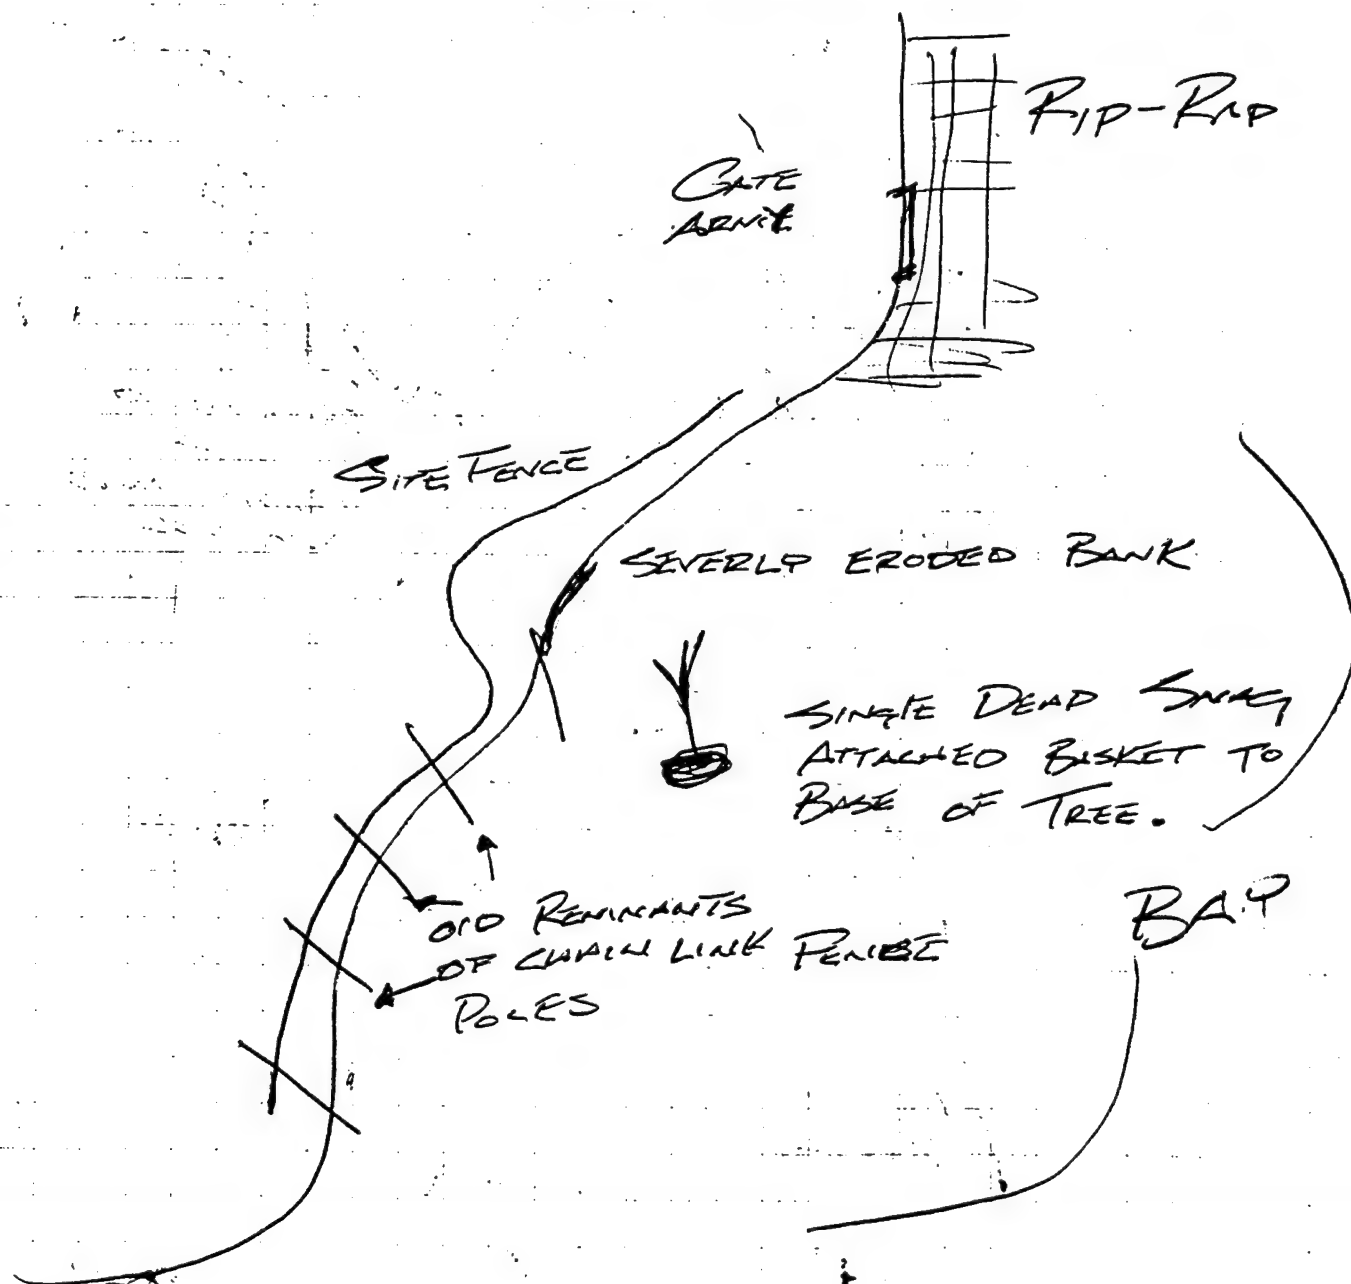 RIP-RAP
GATE
SITE FENCE
SEVERLY ERODED BANK
SINGLE DEAD SNAG
ATTACHED BASKET TO
BASE OF TREE.
BAY
OLD REMINANTS
OF CHAIN LINK
POLES